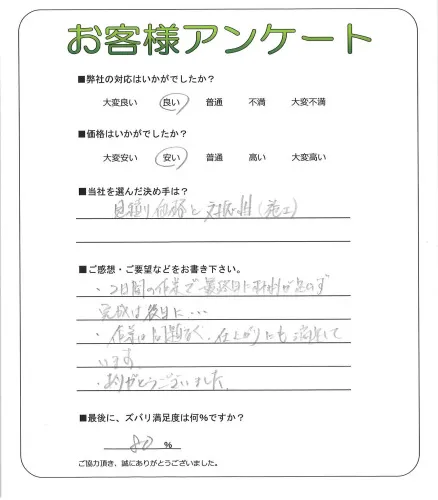 お客様アンケート
■弊社の対応はいかがでしたか？
大変良い 良い 普通 不満 大変不満
■価格はいかがでしたか？
大変安い 安い 普通 高い 大変高い
■当社を選んだ決め手は？
見積り価格と対応(施工)
■ご感想・ご要望などをお書き下さい。
・2日間の作業で最終日に材料が足らず
完成は後日に…
・作業は問題なく、仕上がりにも満足して
います。
・ありがとうございました。
■最後に、ズバリ満足度は何%ですか？
80 %
ご協力頂き、誠にありがとうございました。